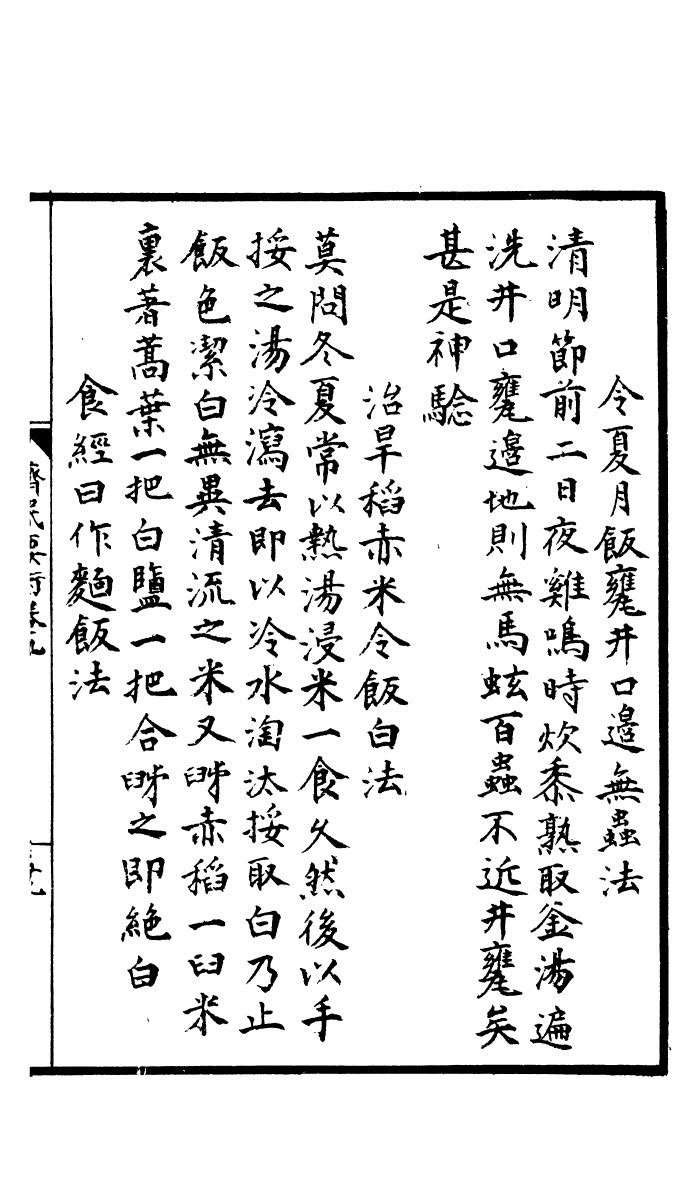 令夏月飯甕井口邉無蟲法
清明節前二日夜雞鳴時炊黍熟取釜湯遍
洗井口甕邉地則無馬蚿百蟲不近井甕矣
甚是神驗
治旱稻赤米令飯白法
莫問冬夏常以熱湯浸米一食久然後以手
挼之湯冷瀉去即以冷水淘汰挼取白乃止
飯色潔白無異清流之米又𦥛赤稻一臼米
裏著蒿葉一把白鹽一把合𦥛之即絶白
食經曰作麵飯法